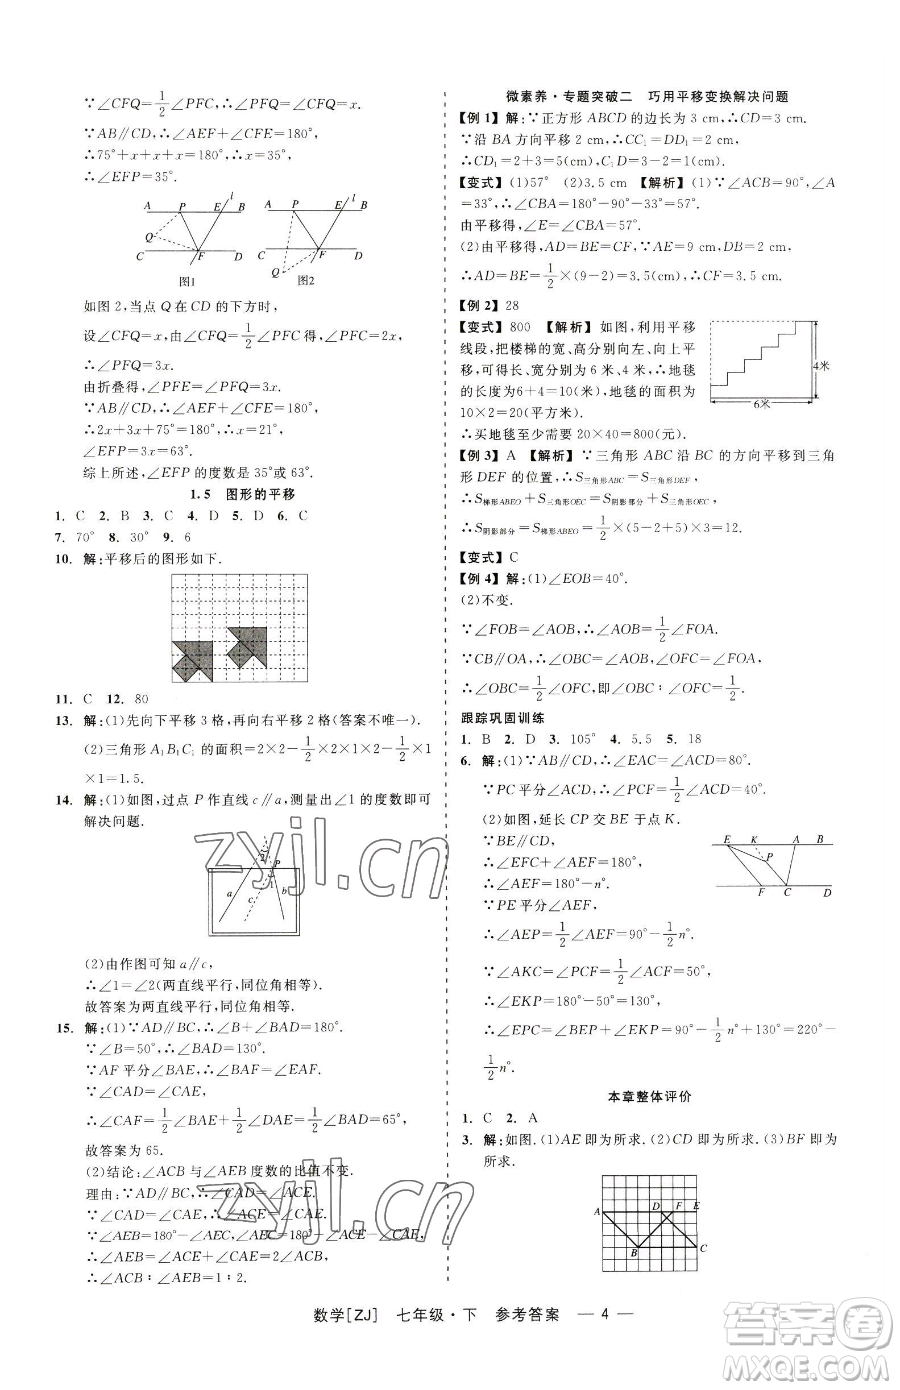 ∵∠CFQ=1/2∠PFC,∴∠PFC=∠CFQ=x.
∵AB∥CD,∴∠AEF+∠CFE=180°,
∴75°+x+x+x=180°,∴x=35°,
∴∠EFP=35°.
A P E B l
Q
C F D
图1
A P E B l
C F D
Q
图2
如图 2,当点 Q 在 CD 的下方时,
设∠CFQ=x,由∠CFQ=1/2∠PFC 得,∠PFC=2x,
∴∠PFQ=3x.
由折叠得,∠PFE=∠PFQ=3x.
∵AB∥CD,∴∠AEF+∠CFE=180°,
∴2x+3x+75°=180°,∴x=21°,
∠EFP=3x=63°.
综上所述,∠EFP 的度数是35°或63°.
1.5 图形的平移
1. C 2. B 3. C 4. D 5. D 6. C
7. 70° 8. 30° 9. 6
10. 解:平移后的图形如下.
11. C 12. 80
13. 解:(1)先向下平移 3 格,再向右平移 2 格(答案不唯一).
(2)三角形 A₁B₁C₁ 的面积=2×2-1/2×1×2-1/2×2×1-1/2×1
×1=1.5.
14. 解:(1)如图,过点 P 作直线 c∥a,测量出∠1 的度数即可
解决问题.
2 P
a 1
c b
(2)由作图可知 a∥c,
∴∠1=∠2(两直线平行,同位角相等).
故答案为两直线平行,同位角相等.
15. 解:(1)∵AD∥BC,∴∠B+∠BAD=180°.
∵∠B=50°,∴∠BAD=130°.
∵AF 平分∠BAE,∴∠BAF=∠EAF.
∵∠CAD=∠CAE,
∴∠CAF=1/2∠BAE+1/2∠DAE=1/2∠BAD=65°,
故答案为 65.
(2)结论:∠ACB 与∠AEB 度数的比值不变.
理由:∵AD∥BC,∴∠CAD=∠ACE.
∵∠CAD=∠CAE,∴∠CAE=∠ACE.
∵∠AEB=180°-∠AEC,∠AEC=180°-∠CAE-∠ACE,
∴∠AEB=∠ACE+∠CAE=2∠ACB,
∴∠ACB∶∠AEB=1/2.
微素养·专题突破二 巧用平移变换解决问题
【例 1】解:∵正方形 ABCD 的边长为 3 cm,∴CD=3 cm.
∵沿 BA 方向平移 2 cm,∴CC₁=DD₁=2 cm,
∴CD₁=2+3=5(cm),C₁D=3-2=1(cm).
【变式】(1)57° (2)3.5 cm 【解析】(1)∵∠ACB=90°,∠A
=33°,∴∠CBA=180°-90°-33°=57°.
由平移得,∠E=∠CBA=57°.
(2)由平移得,AD=BE=CF,∵AE=9 cm,DB=2 cm,
∴AD=BE=1/2×(9-2)=3.5 cm,∴CF=3.5 cm.
【例 2】28
【变式】800 【解析】如图,利用平移
线段,把楼梯的宽、高分别向左、向上平
移,可得长、宽分别为 6 米、4 米,∴地毯
的长度为 6+4=10(米),地毯的面积为
10×2=20(平方米),
∴买地毯至少需要 20×40=800(元).
4米
6米
【例 3】A 【解析】∵三角形 ABC 沿 BC 的方向平移到三角
形 DEF 的位置,∴S三角形ABC=S三角形DEF,
∴S梯形ABEO+S三角形OEC=S阴影部分+S三角形OEC,
∴S阴影部分=S梯形ABEO=1/2×(5-2+5)×3=12.
【变式】C
【例 4】解:(1)∠EOB=40°.
(2)不变.
∵∠FOB=∠AOB,∴∠AOB=1/2∠FOA.
∵CB∥OA,∴∠OBC=∠AOB,∠OFC=∠FOA,
∴∠OBC=1/2∠OFC,即∠OBC∶∠OFC=1/2.
跟踪巩固训练
1. B 2. D 3. 105° 4. 5.5 5. 18
6. 解:(1)∵AB∥CD,∴∠EAC=∠ACD=80°.
∵PC 平分∠ACD,∴∠ACP=1/2∠ACD=40°.
(2)如图,延长 CP 交 BE 于点 K.
∵BE∥CD,
∴∠EFC+∠AEF=180°,
∴∠AEF=180°-n°.
∵PE 平分∠AEF,
∴∠AEP=1/2∠AEF=90°-1/2n°.
E K A B
P
F C D
∵∠EKC=∠PCF=1/2∠ACF=50°,
∴∠EKP=180°-50°=130°,
∴∠EPC=∠BEP+∠EKP=90°-1/2n°+130°=220°-
1/2n°.
本章整体评价
1. C 2. A
3. 解:如图.(1)AE 即为所求.(2)CD 即为所求.(3)BF 即为
所求.
A D F E
B C
数学[ZJ] 七年级·下 参考答案 — 4 —
zyjl.cn
zyjl.cn
答案圈
MXQE.COM